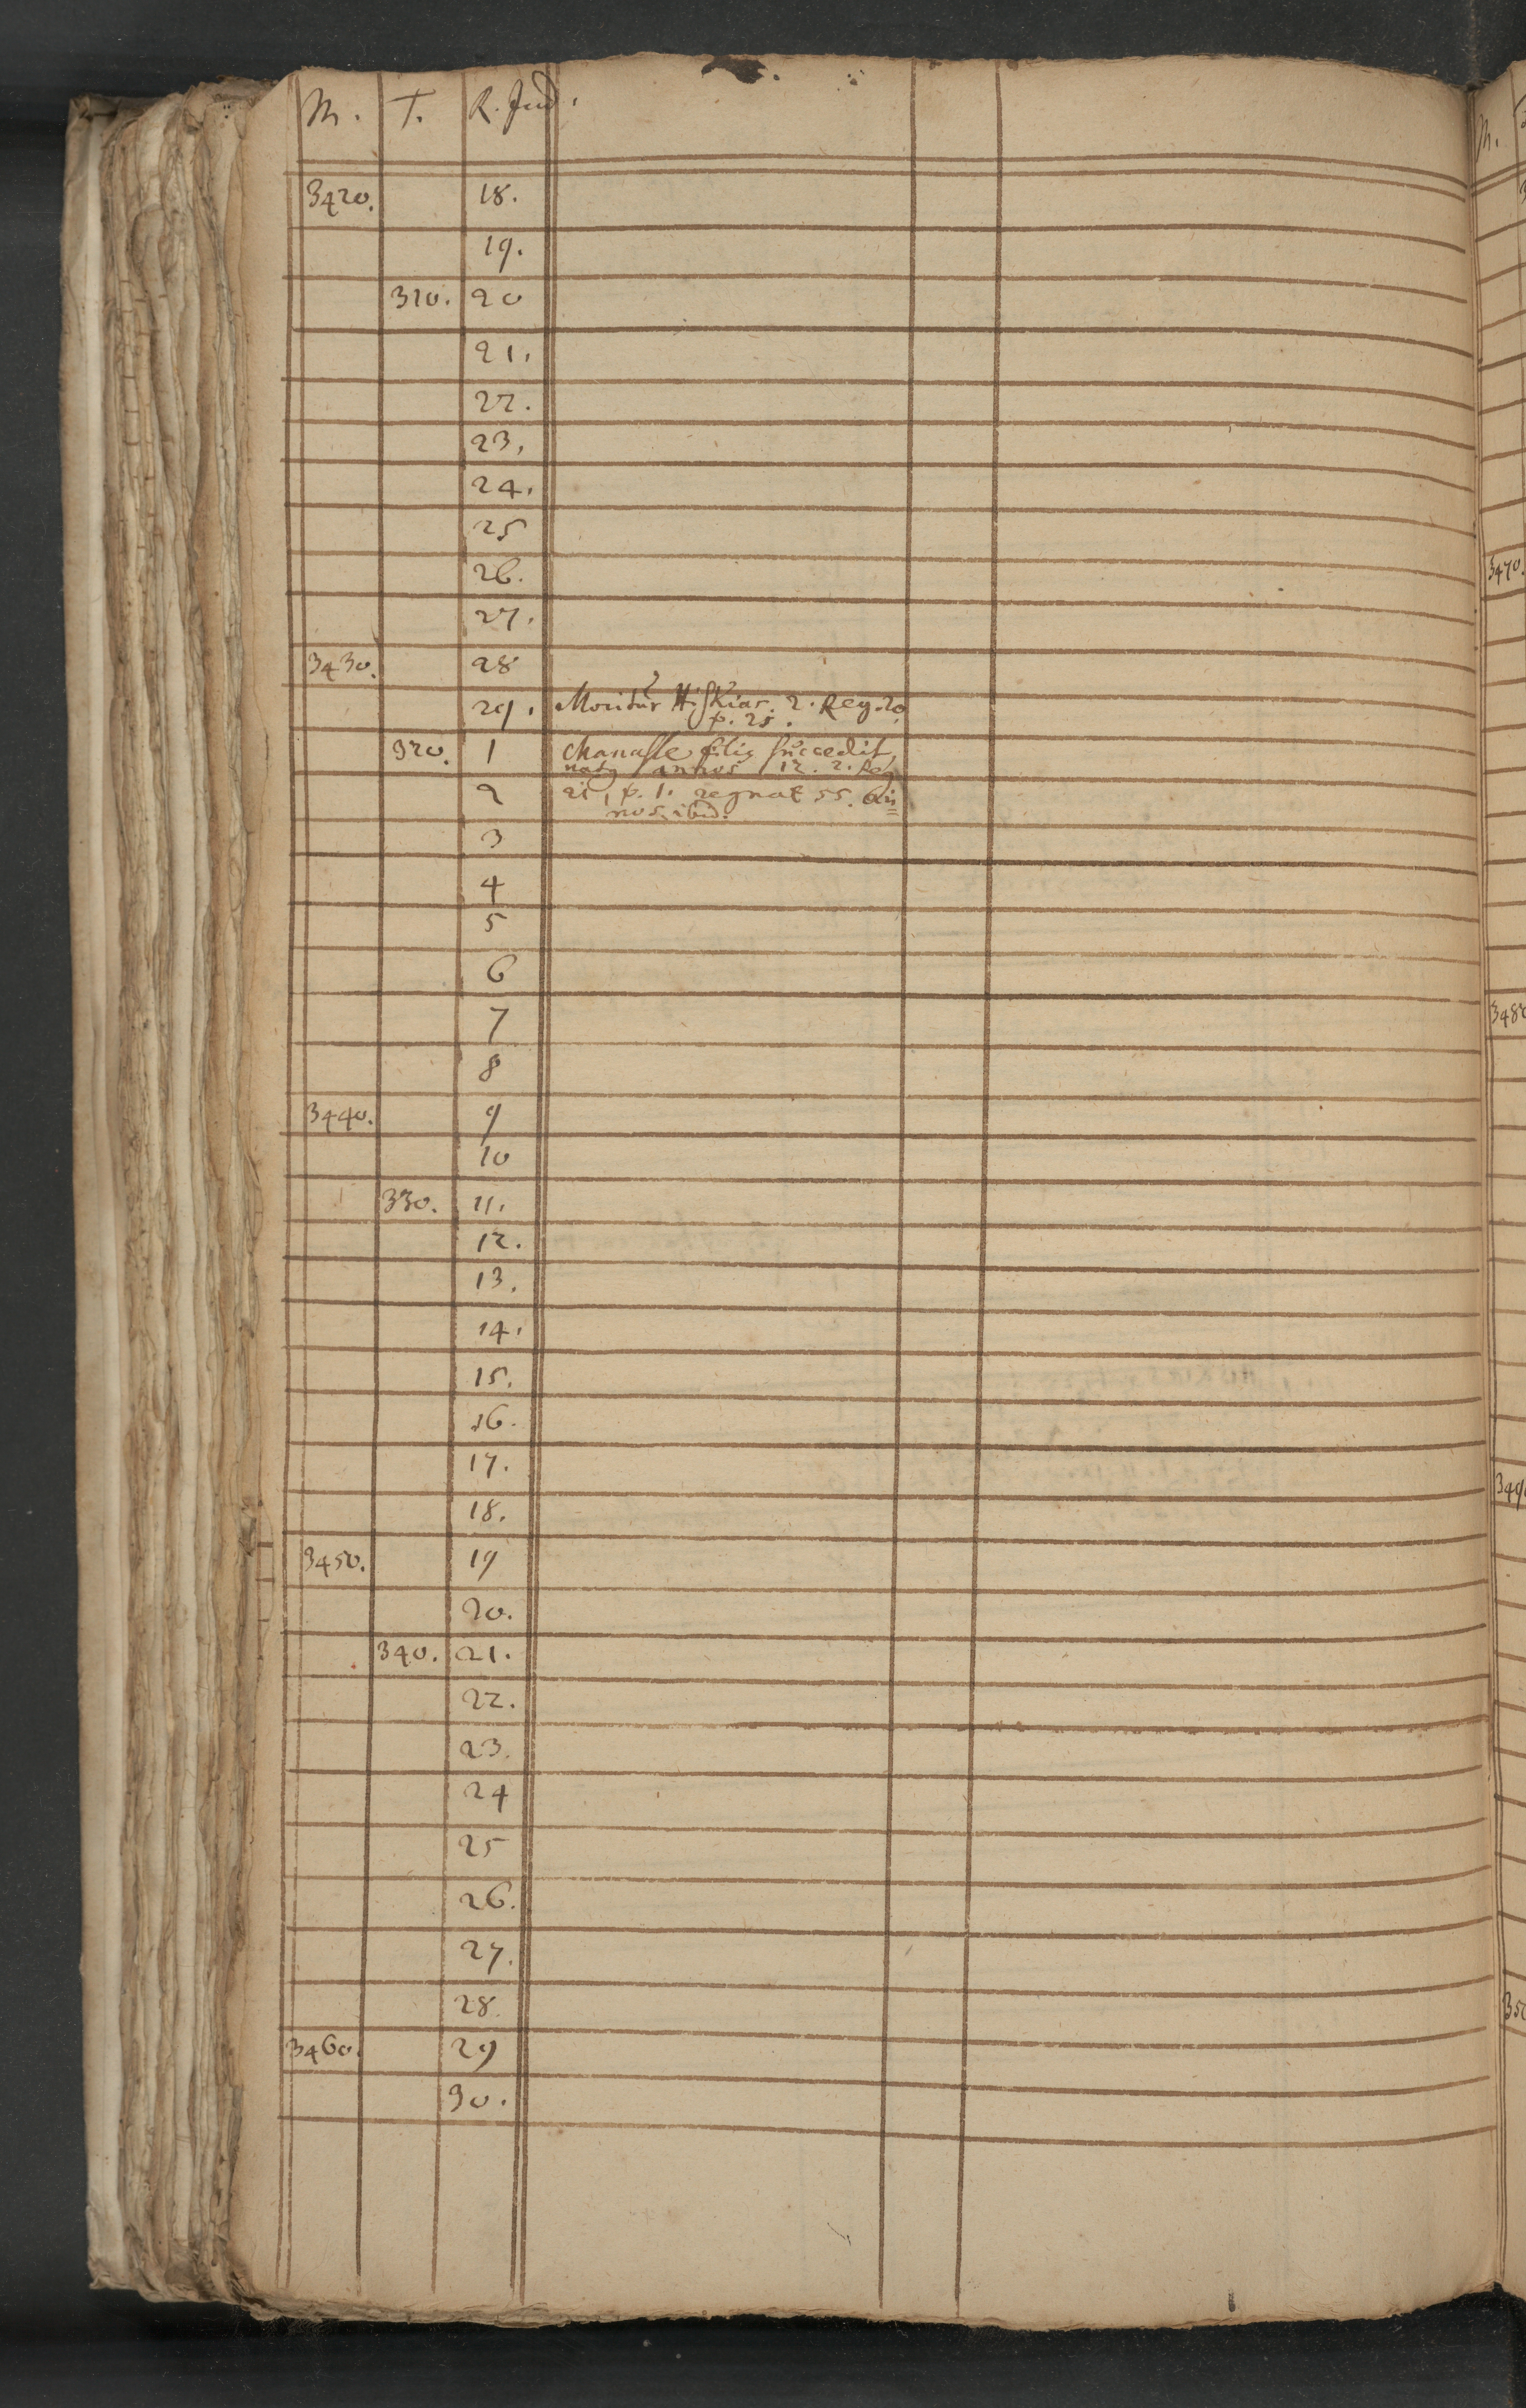 M. T. R. Jud.
3420. 18.
19.
310. 20
21.
22.
23.
24.
25
26.
27.
3430. 28
29. Moritur Hiskias. 2. Reg. 20.
p. 21.
320. 1 Manasse filig succedit,
natg annos 12. 2. Reg
2 21, p. 1. regnat 55. an=
nos. ibid.
3
4
5
6
7
8
3440. 9
10
330. 11.
12.
13.
14.
15.
16.
17.
18.
3450. 19
20.
340. 21.
22.
23.
24
25
26.
27.
28.
3460. 29
30.
M.
3470.